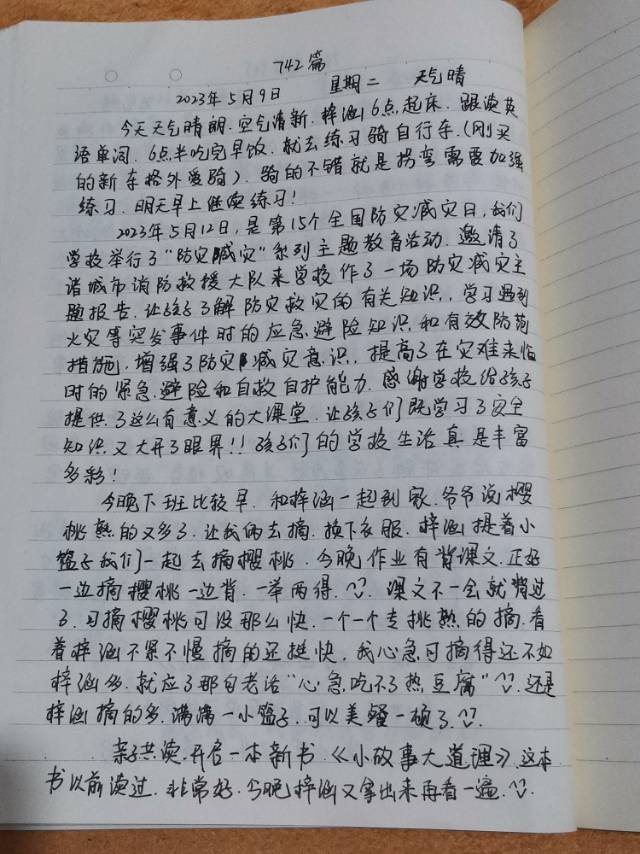 742篇
2023年5月9日 星期二 天气晴
今天天气晴朗.空气清新.梓涵6点起床.跟读英
语单词.6点半吃完早饭.就去练习骑自行车.(刚买
的新车格外爱骑).骑的不错就是拐弯需要加强
练习.明天早上继续练习!
2023年5月12日,是第15个全国防灾减灾日,我们
学校举行了"防灾减灾"系列主题教育活动.邀请了
诸城市消防救援大队来学校作了一场防灾减灾主
题报告.让孩子了解防灾救灾的有关知识,学习遇到
火灾等突发事件时的应急避险知识和有效防范
措施.增强了防灾减灾意识,提高了在灾难来临
时的紧急避险和自救自护能力.感谢学校给孩子
提供了这么有意义的大课堂.让孩子们既学习了安全
知识又大开了眼界!!孩子们的学校生活真是丰富
多彩!
今晚下班比较早.和梓涵一起到家.爷爷说樱
桃熟的又多了.让我俩去摘.换下衣服.梓涵提着小
篮子我们一起去摘樱桃.今晚作业有背课文.正好
一边摘樱桃一边背.一举两得.课文不一会就背过
了.可摘樱桃可没那么快.一个一个专挑熟的摘.看
着梓涵不紧不慢摘的还挺快.我心急可摘得还不如
梓涵多.就应了那句老话"心急吃不了热豆腐".还是
梓涵摘的多.满满一小篮子.可以美餐一顿了.
亲子共读.开启一本新书《小故事大道理》.这本
书以前读过.非常好.今晚梓涵又拿出来再看一遍.